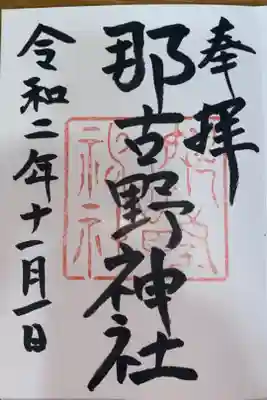 奉拝
那古野神社
令和二年十一月一日